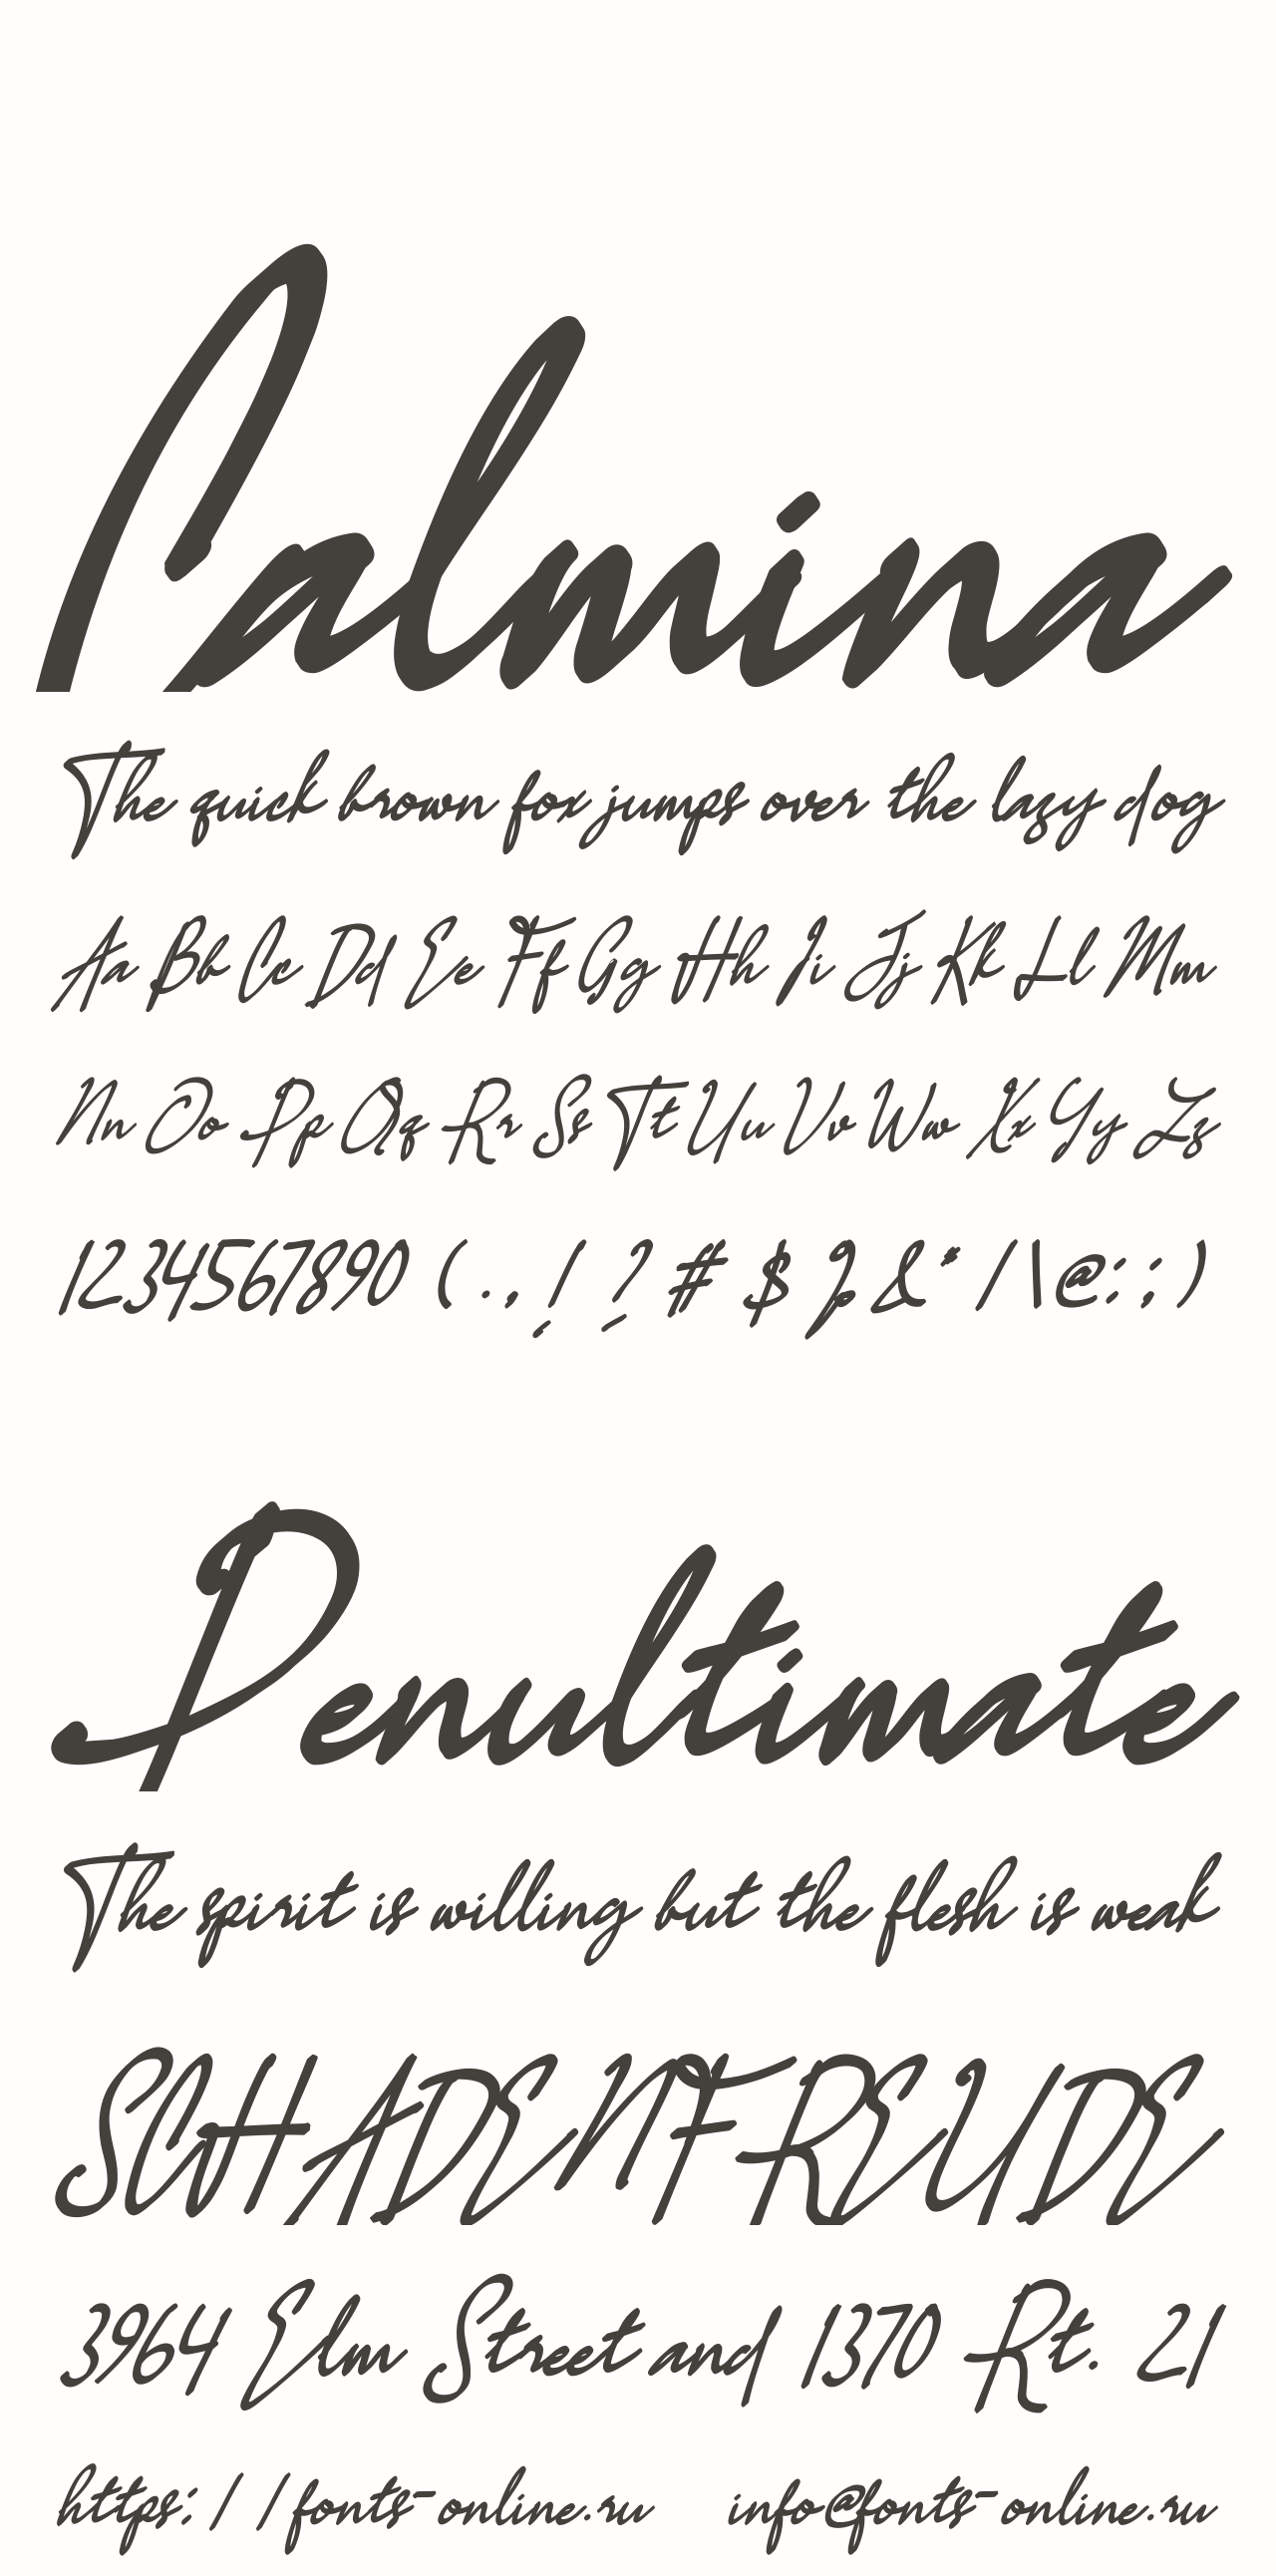 Calmina
The quick brown fox jumps over the lazy dog
Aa Bb Cc Dd Ee Ff Gg Hh Ii Jj Kk Ll Mm
Nn Oo Pp Qq Rr Ss Tt Uu Vv Ww Xx Yy Zz
1234567890 (.,!?#$%&*/\@:;)
Penultimate
The spirit is willing but the flesh is weak
SCHADENFREUDE
3964 Elm Street and 1370 Rt. 21
https://fonts-online.ru info@fonts-online.ru